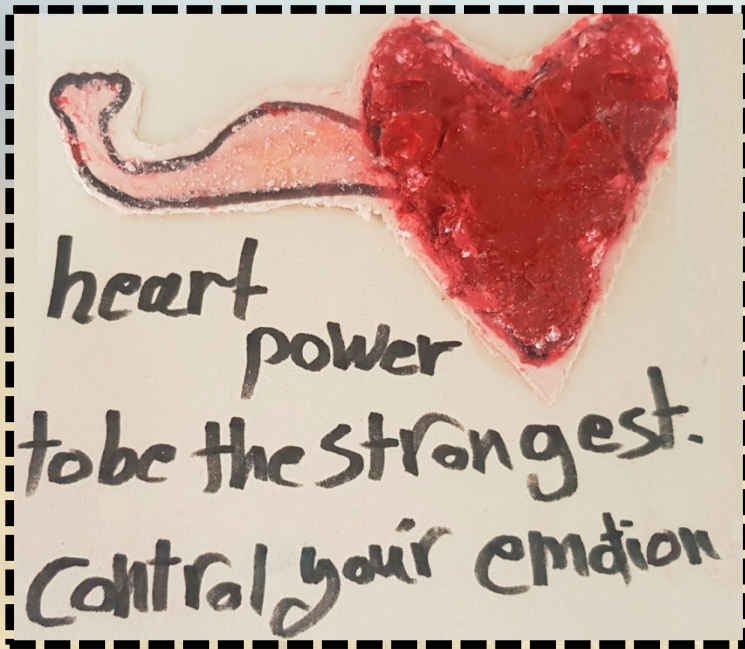 heart
power
tobe the strongest.
control your emotion